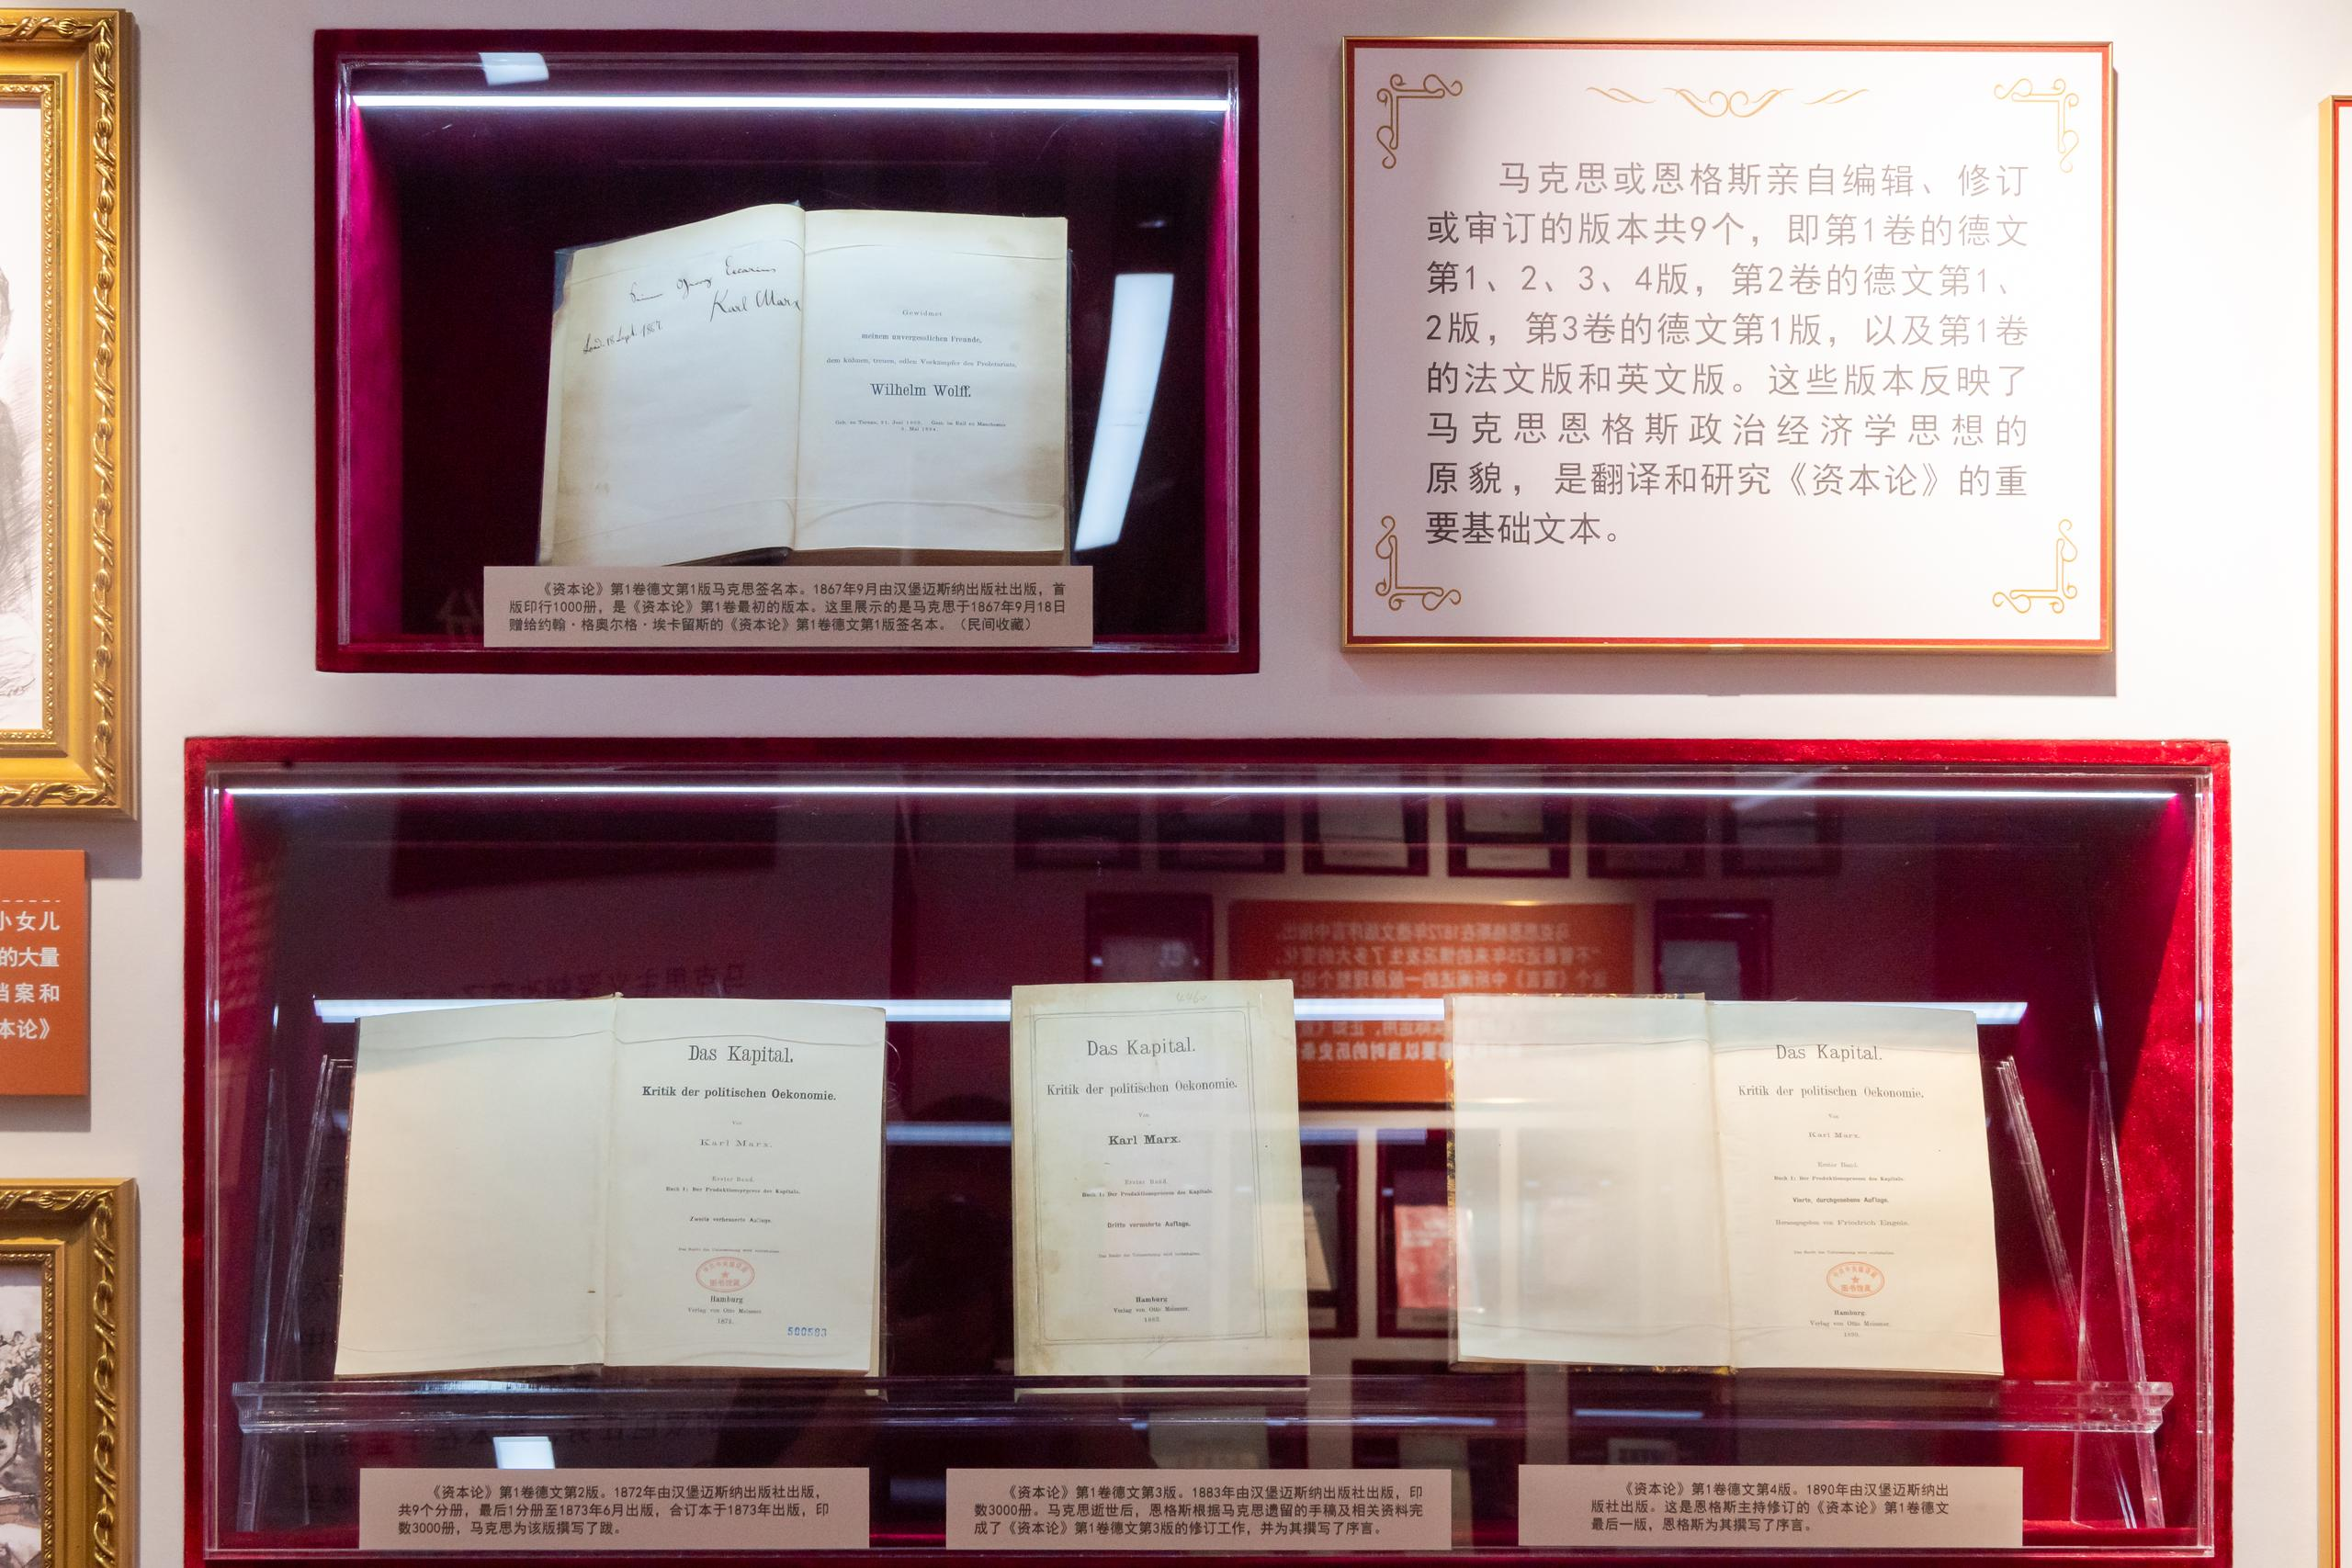 Karl Marx
Gewidmet
meinem unvergesslichen Freunde,
dem kühnen, treuen, edlen Vorkämpfer des Proletariats,
Wilhelm Wolff.
《资本论》第1卷德文第1版马克思签名本。1867年9月由汉堡迈斯纳出版社出版，首
版印行1000册，是《资本论》第1卷最初的版本。这里展示的是马克思于1867年9月18日
赠给约翰·格奥尔格·埃卡留斯的《资本论》第1卷德文第1版签名本。（民间收藏）
马克思或恩格斯亲自编辑、修订
或审订的版本共9个，即第1卷的德文
第1、2、3、4版，第2卷的德文第1、
2版，第3卷的德文第1版，以及第1卷
的法文版和英文版。这些版本反映了
马克思恩格斯政治经济学思想的
原貌，是翻译和研究《资本论》的重
要基础文本。
小女儿
的大量
档案和
本论》
Das Kapital.
Kritik der politischen Oekonomie.
Von
Karl Marx.
Erster Band.
Buch I: Der Produktionsprocess des Kapitals.
Zweite verbesserte Auflage.
图书馆藏
Hamburg
Verlag von Otto Meissner.
580583
Das Kapital.
Kritik der politischen Oekonomie.
Von
Karl Marx.
Erster Band.
Buch I: Der Produktionsprocess des Kapitals.
Dritte vermehrte Auflage.
Hamburg
Verlag von Otto Meissner.
1883.
Das Kapital.
Kritik der politischen Oekonomie.
Von
Karl Marx.
Erster Band.
Buch I: Der Produktionsprocess des Kapitals.
Vierte, durchgesehene Auflage.
Herausgegeben von Friedrich Engels.
图书馆藏
Hamburg
Verlag von Otto Meissner.
1890.
《资本论》第1卷德文第2版。1872年由汉堡迈斯纳出版社出版，
共9个分册，最后1分册至1873年6月出版，合订本于1873年出版，印
数3000册，马克思为该版撰写了跋。
《资本论》第1卷德文第3版。1883年由汉堡迈斯纳出版社出版，印
数3000册。马克思逝世后，恩格斯根据马克思遗留的手稿及相关资料完
成了《资本论》第1卷德文第3版的修订工作，并为其撰写了序言。
《资本论》第1卷德文第4版。1890年由汉堡迈斯纳出
版社出版。这是恩格斯主持修订的《资本论》第1卷德文
最后一版，恩格斯为其撰写了序言。